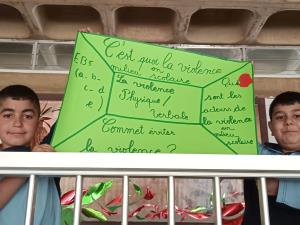 C'est quoi la violence
en
milieu scolaire
EB5
(a. b.
c. d
e)
La violence
Physique/
Verbale
Qui
sont les
acteurs de
la violence
en
milieu
scolaire
Commet éviter
la violence?